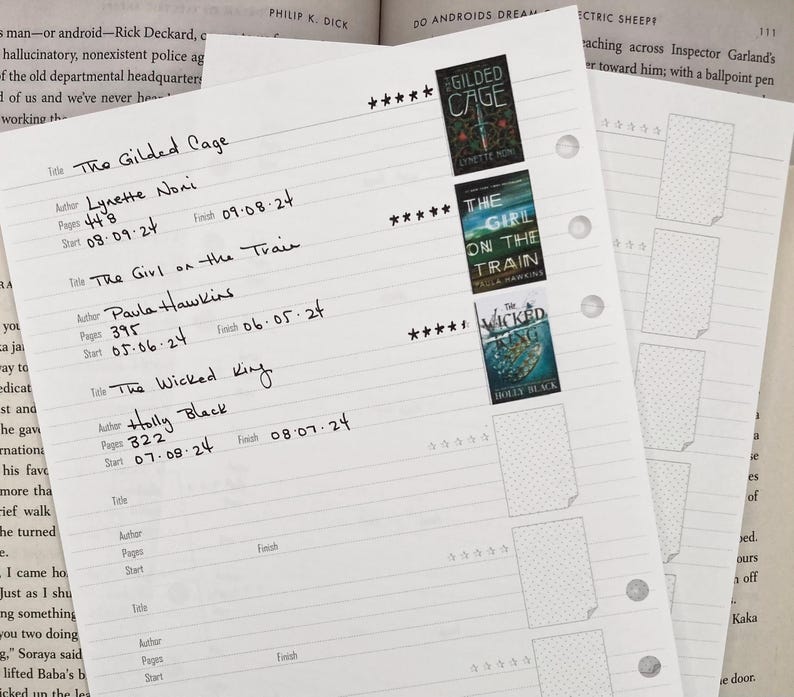 PHILIP K. DICK
DO ANDROIDS DREAM ECTRIC SHEEP?
111
s man—or android—Rick Deckard,
hallucinatory, nonexistent police
of the old departmental headquarters
d of us and we've never
working
eaching across Inspector Garland's
er toward him; with a ballpoint pen
Title The Gilded Cage
Author Lynette Noni
Pages 448
Start 08.09.24 Finish 09.08.24
THE GILDED CAGE
LYNETTE NONI
Title The Girl on the Train
Author Paula Hawkins
Pages 395
Start 05.06.24 Finish 06.05.24
THE GIRL ON THE TRAIN
PAULA HAWKINS
Title The Wicked King
Author Holly Black
Pages 322
Start 07.08.24 Finish 08.07.24
THE WICKED KING
HOLLY BLACK
Title
Author
Pages
Start Finish
Title
Author
Pages
Start Finish
you
st and
he gave
his
more
rief walk
he turned
I came
Just as I
ng something
you two doing
ng," Soraya said
lifted Baba's
icked up the
se
es
of
ours
off
Kaka
door.